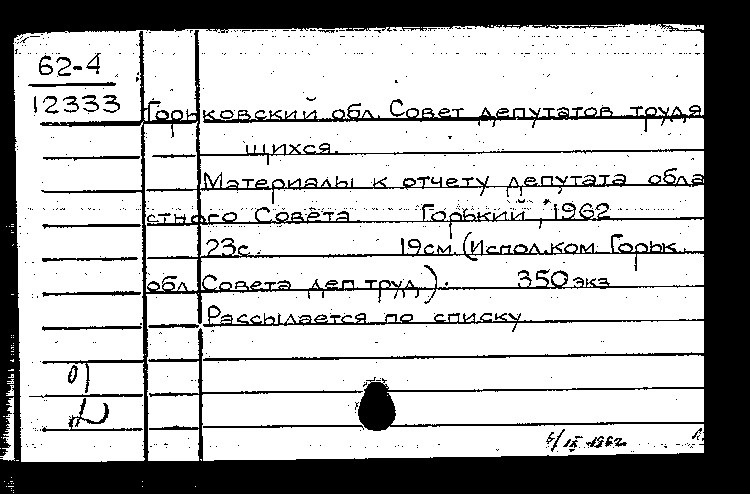 62-4
12333
Горьковский обл. Совет депутатов трудя
щихся.
Материалы к отчету депутата обла
стного Совета Горький, 1962
23с. 19см. (Испол.ком. Горьк.
обл. Совета деп труд.). 350 экз
Рассылается по списку
6/IX 1962.